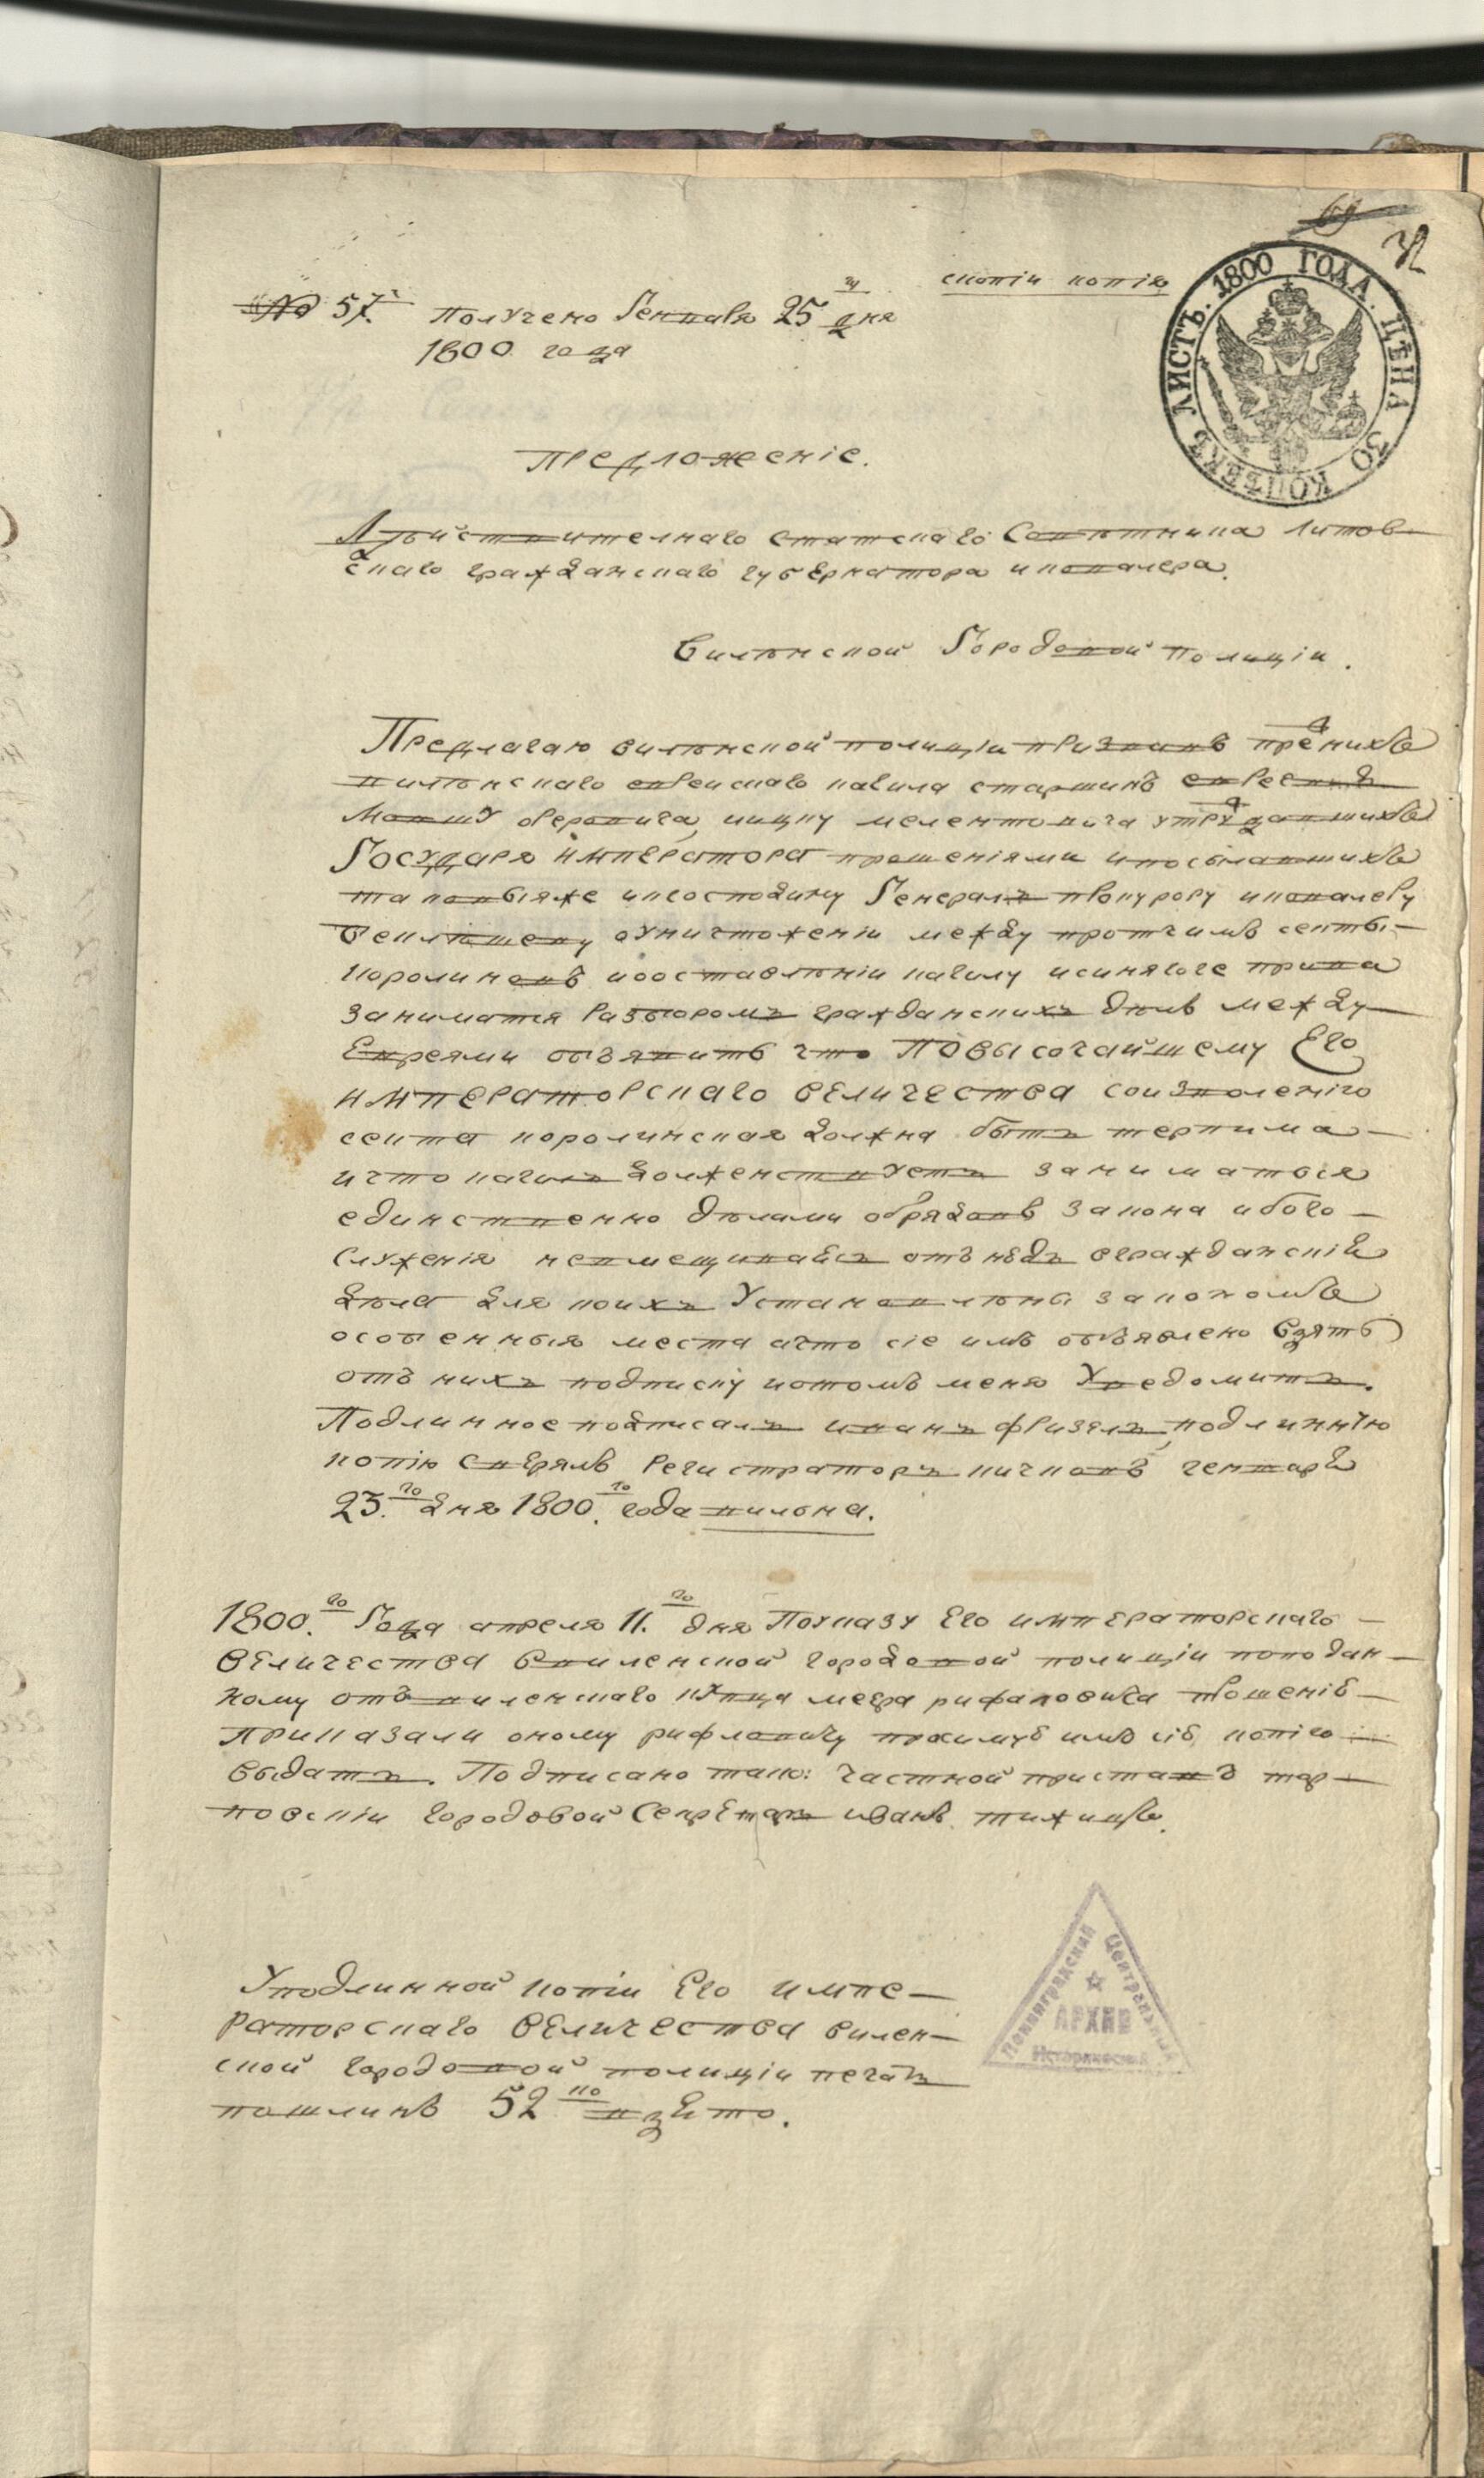 69
72
скопiи копiя
№ 57. получено Генваря 25 дня
1800 года
ЛИСТЪ. 1800 ГОДА. ЦѢНА 30 КОПѢЕКЪ
Предложенiе.
Дѣйствителнаго статскаго Совѣтника литов-
скаго гражданскаго губернатора и кавалера.
Вилѣнской Городовой полицiи.
Предлагаю вилѣнской полицiи призвавъ прежнихъ
вилѣнскаго еврейскаго кагила старшинъ евреевъ
утруждавшихъ
Государя императора прошенiями и посылавшихъ
таковыяже и к господину Генералъ прокурору и кавалеру
о уничтоженiи между протчимъ секты
каролиновъ и о оставленiи кагилу и синягоге права
заниматся разборомъ гражданскихъ дѣлъ между
Евреями объявить что повысочайшему Его
императорскаго величества соизволенiю
секта каролинская должна быть терпима
и что кагилъ долженствуетъ заниматься
единственно дѣлами обрядовъ закона и бого-
служенiя невмещиваясь отнюдь в гражданскiя
дѣла для коихъ Установлѣны закономъ
особенныя места и что сiе имъ объявлено взять
отъ нихъ подписку и потомъ меня Уведомить.
Подлинное подписалъ иванъ фризель, подлинную
копiю сверялъ Регистраторъ генваря
23.го дня 1800.го года вильна.
1800.го Года апреля 11.го дня По указу Его императорскаго
величества в виленской городовой полицiи по подан-
ному отъ виленскаго купца меера рифаловича прошенiю
приказали оному рифаловичу просимую имъ сiю копiю
выдать. Подписано тако: Частной приставъ тар-
новскiи городовой Секретарь иванъ
У подлинной копiи Его импе-
раторскаго величества вилен-
ской городовой полицiи печать
пошлинъ 52 ко взято.
Ленинградский Центральный
АРХИВ
Исторический